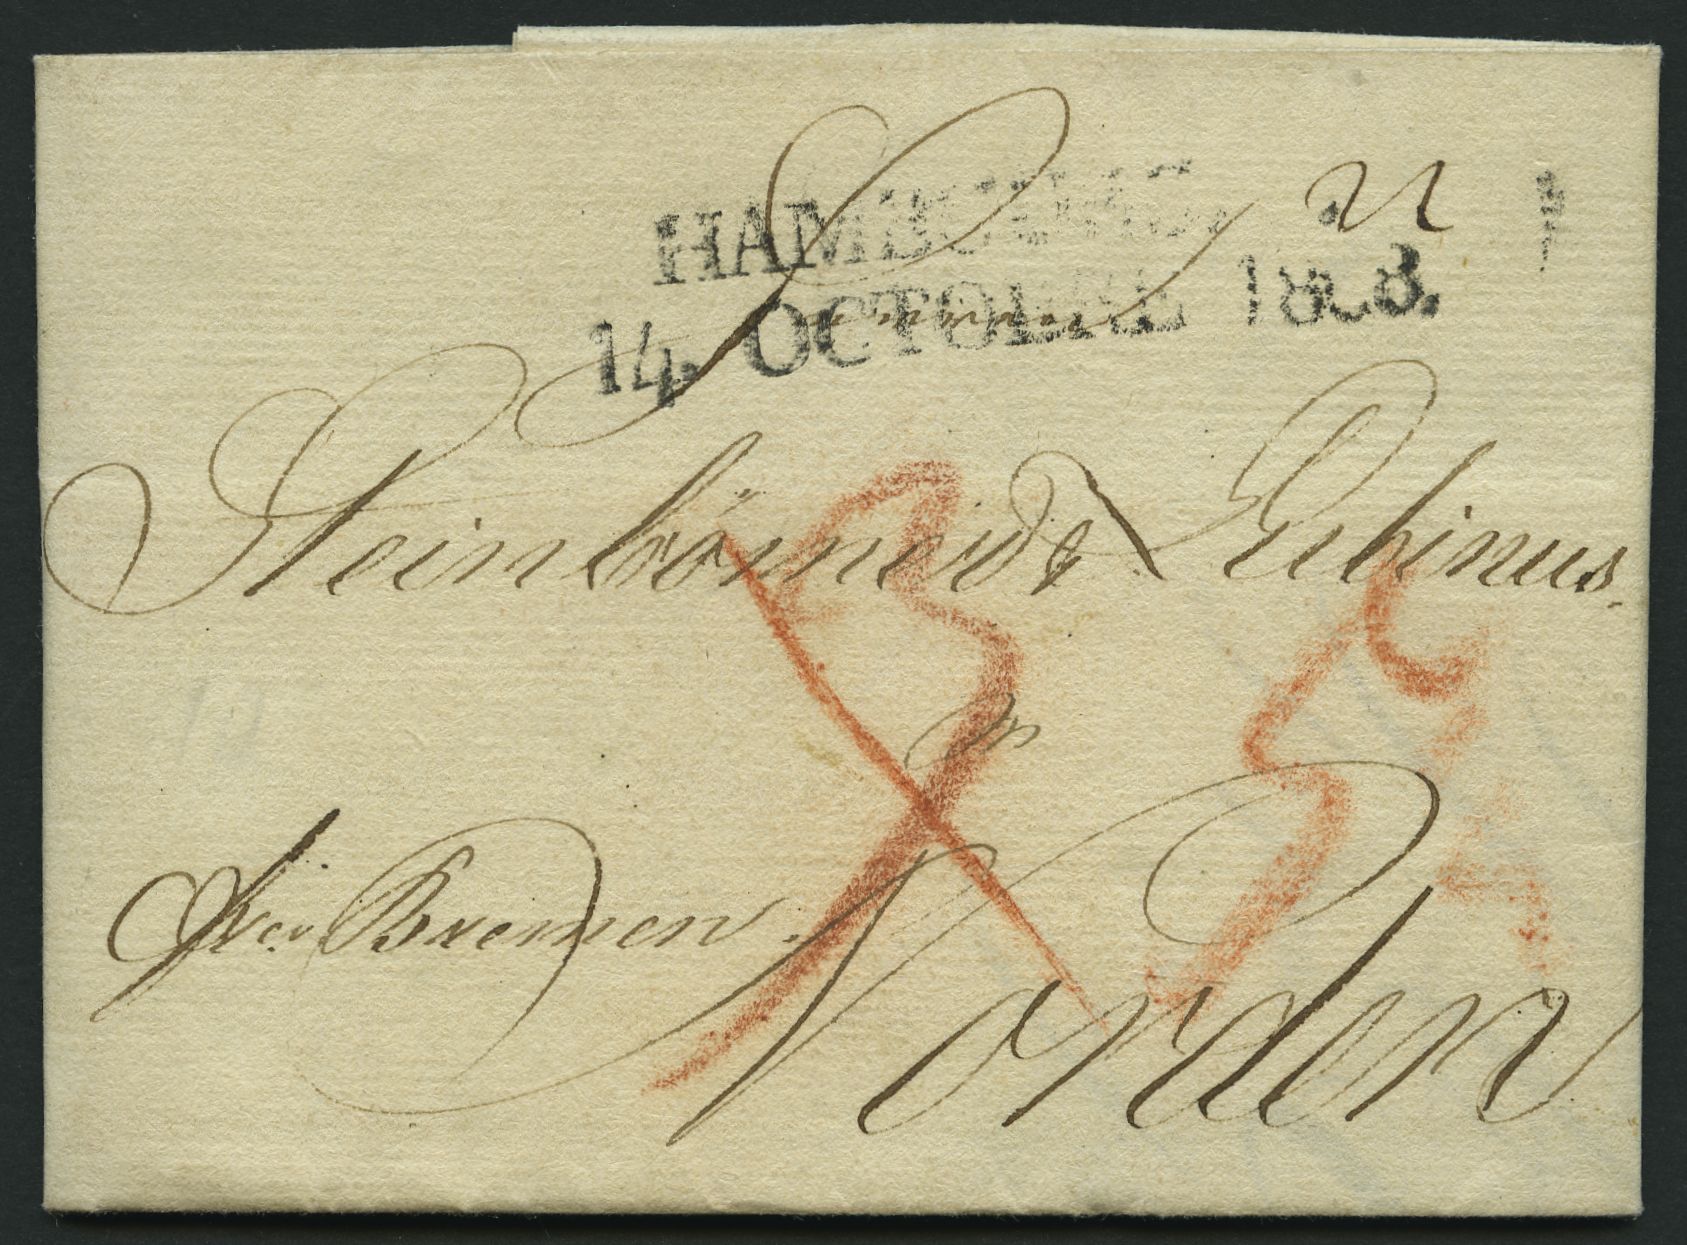 HAMBOURG
14. OCTOBRE 1808.
Steinbömer & Lubinus.
in
per Bremen.
Norden